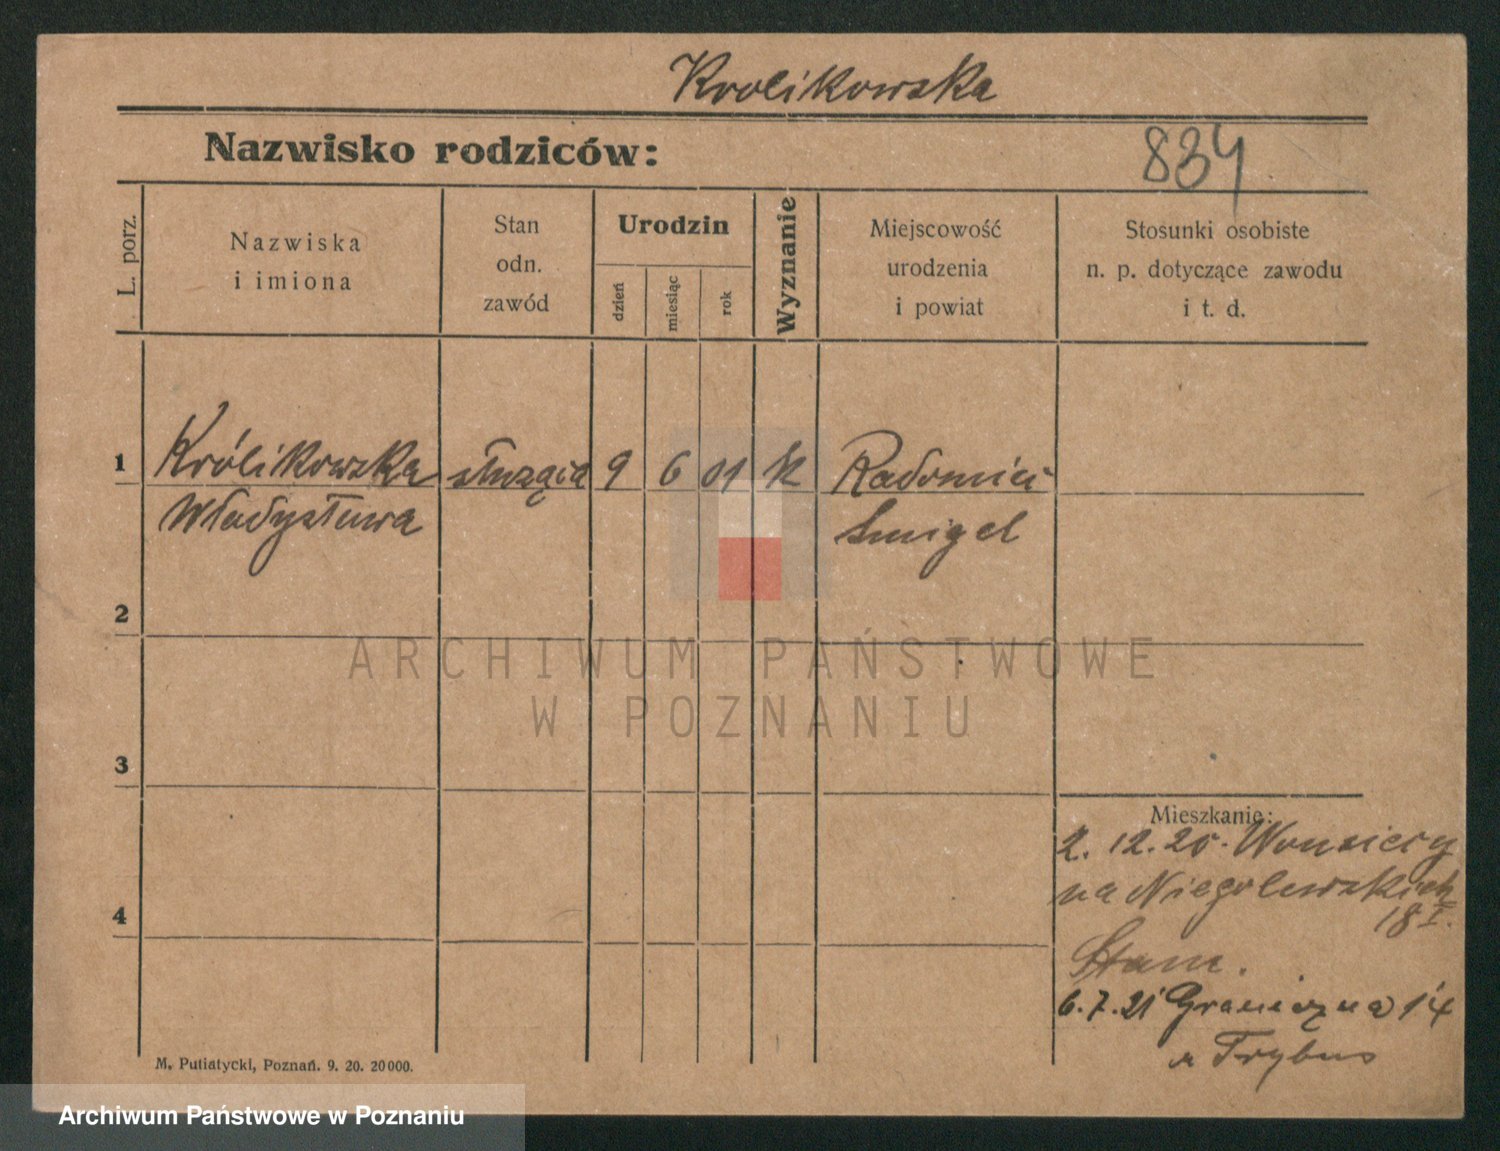 Krolikowska
Nazwisko rodziców:
834
L. porz.
Nazwiska
i imiona
Stan
odn.
zawód
Urodzin
dzień
miesiąc
rok
Wyznanie
Miejscowość
urodzenia
i powiat
Stosunki osobiste
n. p. dotyczące zawodu
i t. d.
1
Królikowska
Władysława
służąca
9
6
01
k
Radomicł
Smigel
2
3
4
ARCHIWUM PAŃSTWOWE
W POZNANIU
Mieszkanie:
2. 12. 20.
na Niegolewskich
18 I.
6. 7. 21 Graniczna 14
Trybus
M. Putiatycki, Poznań. 9. 20. 20000.
Archiwum Państwowe w Poznaniu